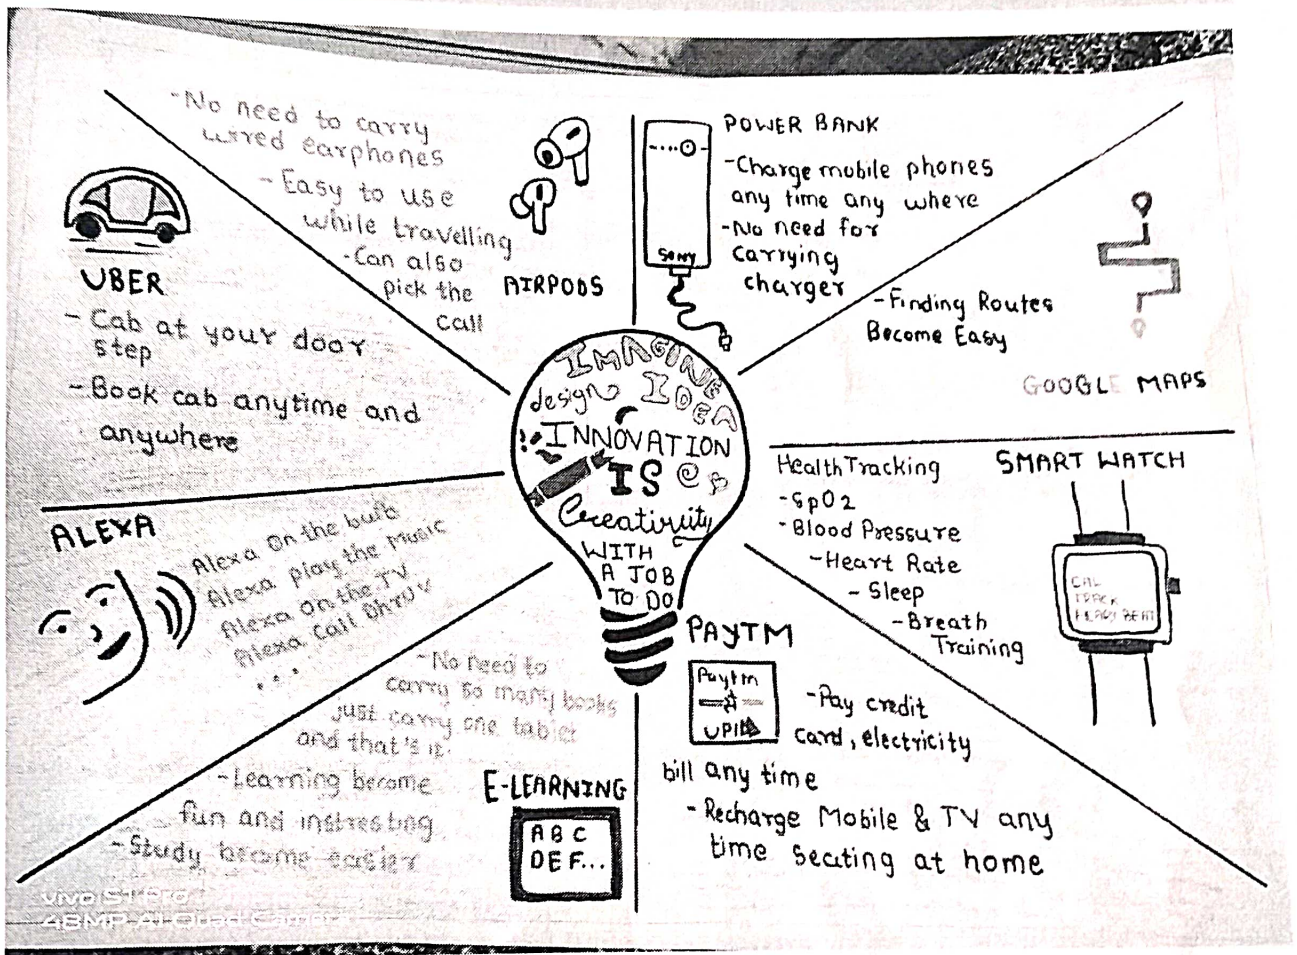 -No need to carry
wired earphones
- Easy to use
while travelling
-Can also
pick the
call
AIRPODS
POWER BANK
-Charge mobile phones
any time any where
-No need for
carrying
charger
SONY
-Finding Routes
Become Easy
GOOGLE MAPS
UBER
- Cab at your door
step
-Book cab anytime and
anywhere
IMAGINE
design IDEA
INNOVATION
IS
Creativity
WITH
A JOB
TO DO
ALEXA
Alexa On the bulb
Alexa play the Music
Alexa On the TV
Alexa Call Dhruv
...
Health Tracking
-SpO2
-Blood Pressure
-Heart Rate
- Sleep
-Breath
Training
SMART WATCH
CAL
TRACK
HEART BEAT
-No need to
carry so many books
just carry one tablet
and that's it.
-Learning become
fun and instresting
-Study become easier
E-LEARNING
A B C
D E F...
PAYTM
Paytm
UPI
-Pay credit
card, electricity
bill any time
- Recharge Mobile & TV any
time seating at home
vivo S1 Pro
48MP AI Quad Camera